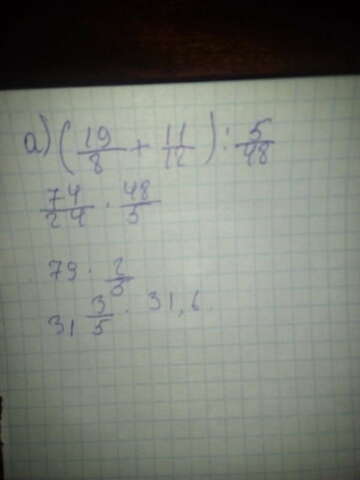 а) (19/8 + 11/12) : 5/48
79/24 · 48/5
79 · 2/5
31 3/5 · 31,6.